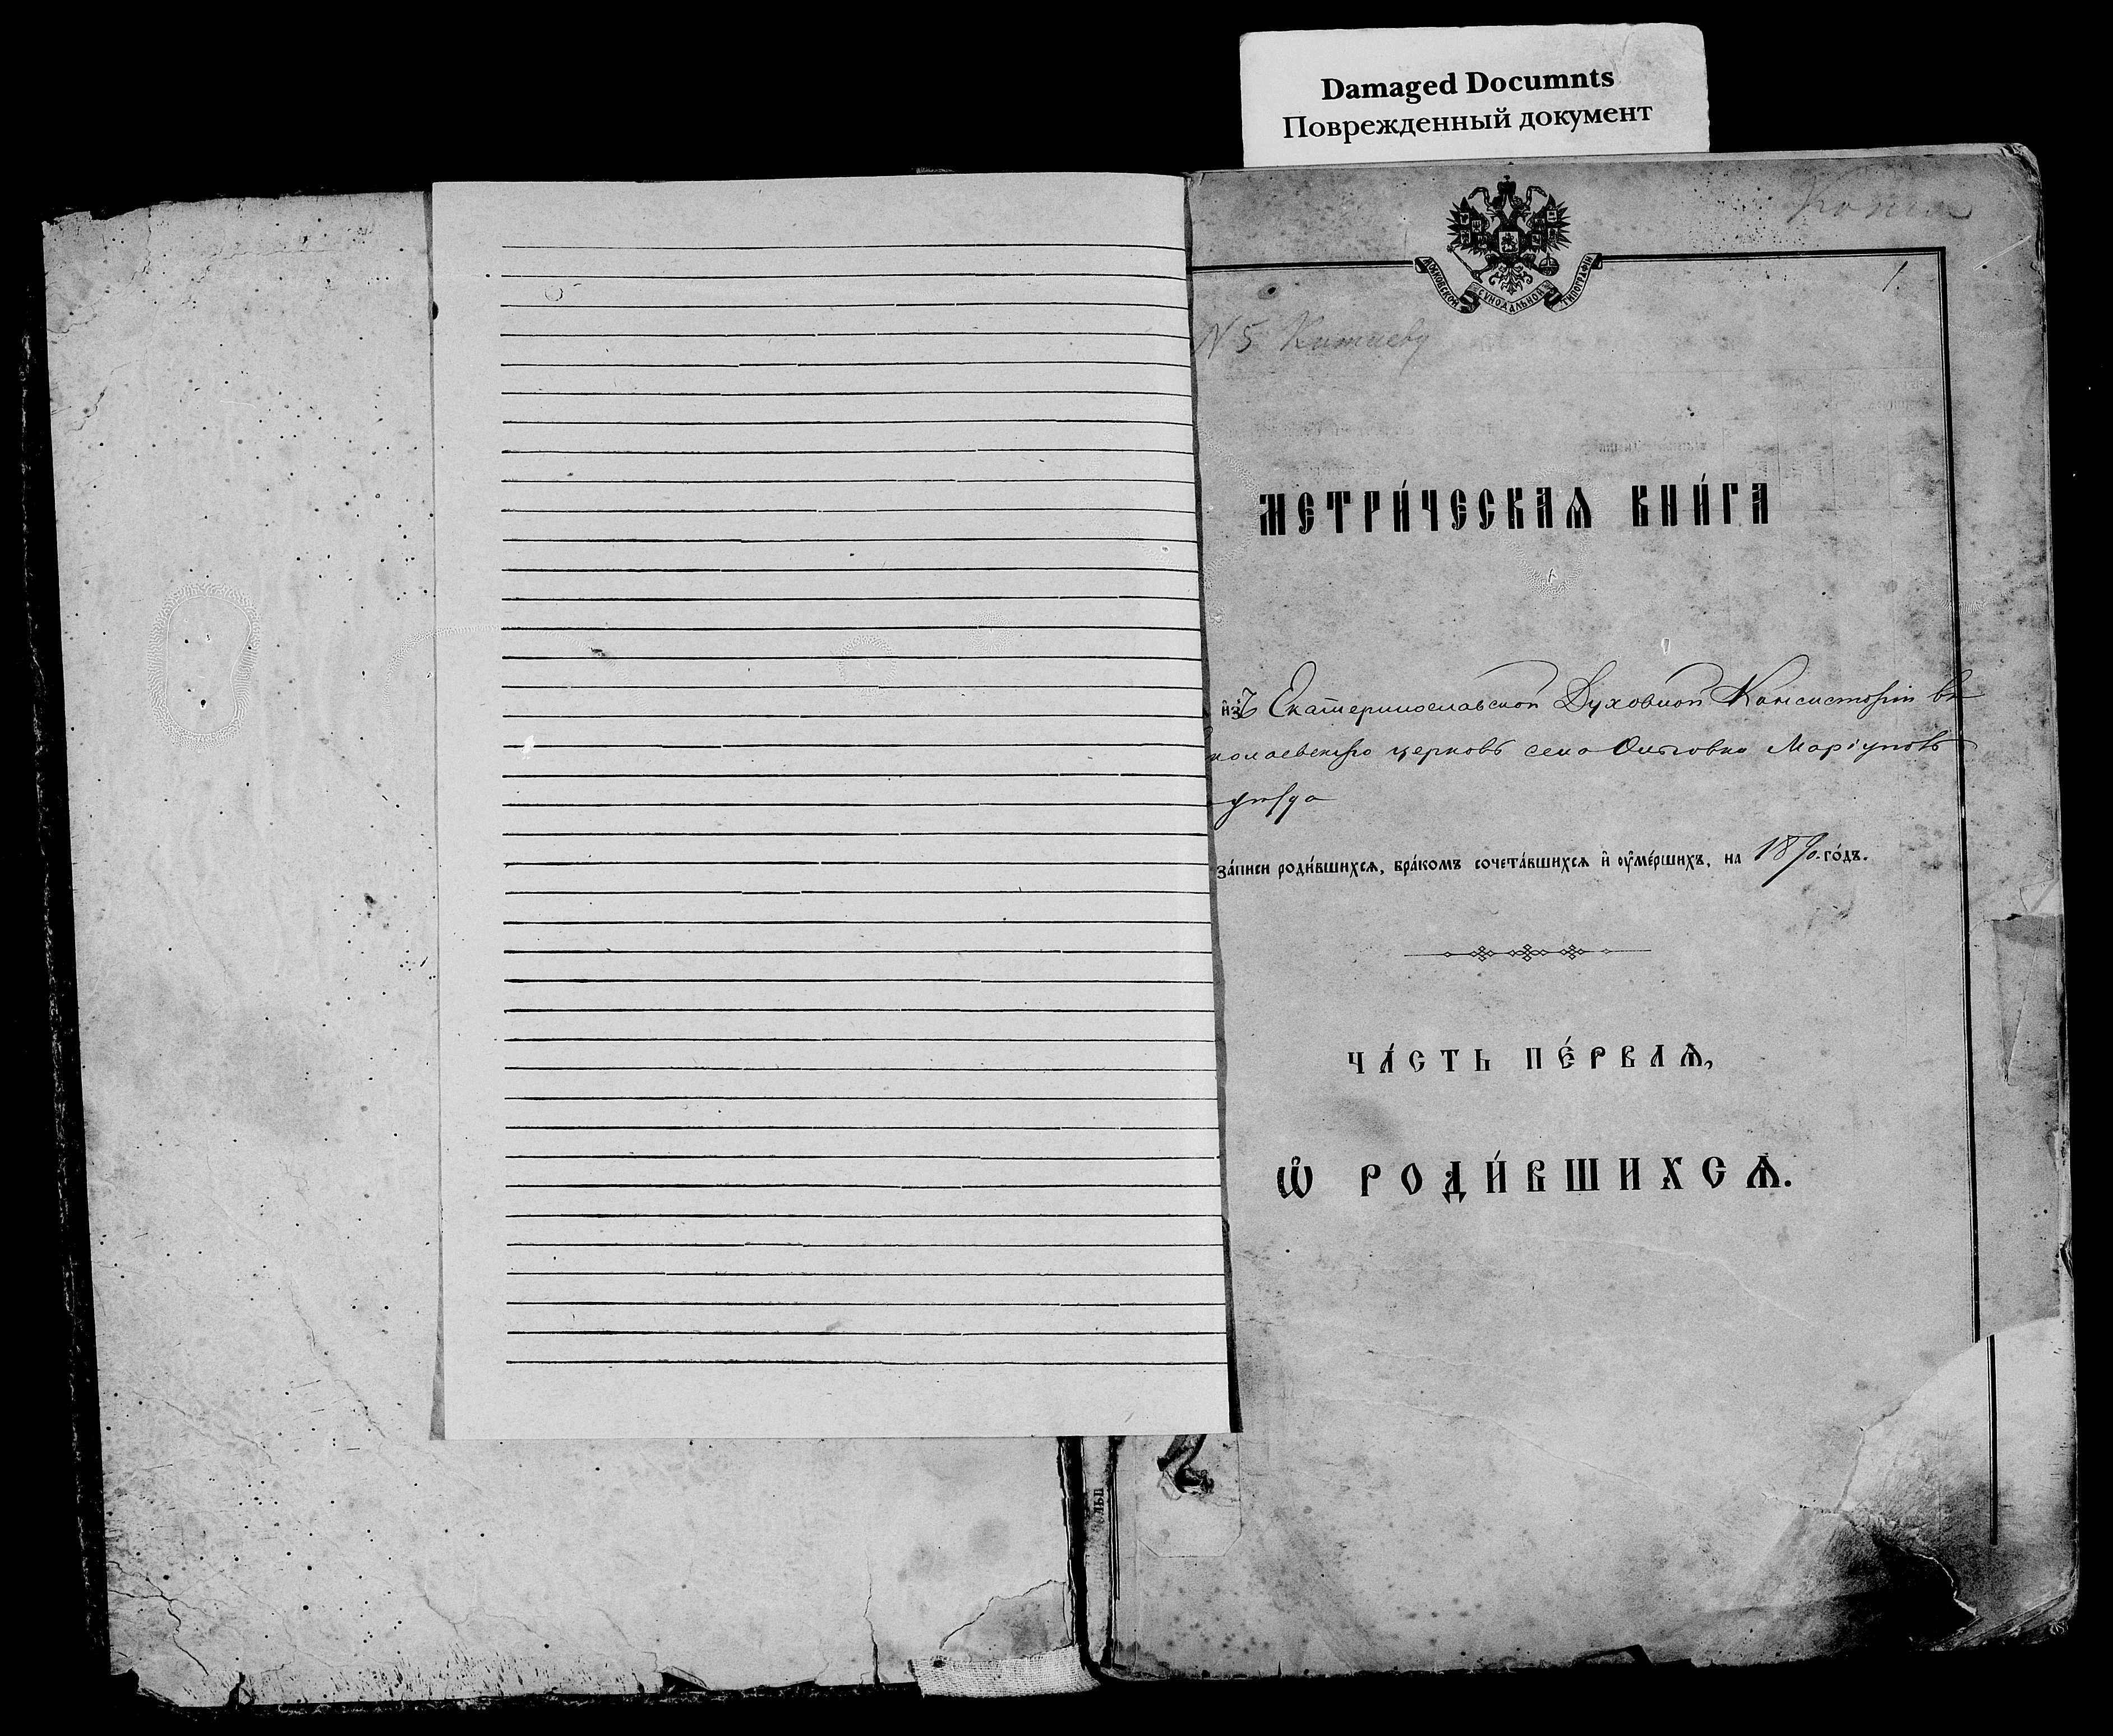 Damaged Documnts
Поврежденный документ
МОСКОВСКОЙ СѴНОДАЛЬНОЙ ТИПОГРАФІИ
Копия
1.
N 5
МЕТРИ́ЧЕСКАѦ КНИ́ГА
и҆зъ Екатеринославской Духовной Консисторіи въ
колаевскую церковь села Ольговка Маріуполь
уѣзда
за́писи роди́вшихсѧ, бра́комъ сочета́вшихсѧ и҆ оу҆ме́ршихъ, на го́дъ.
ЧА́СТЬ ПЕ́РВАѦ,
Ѡ҆ РОДИ́ВШИХСѦ.